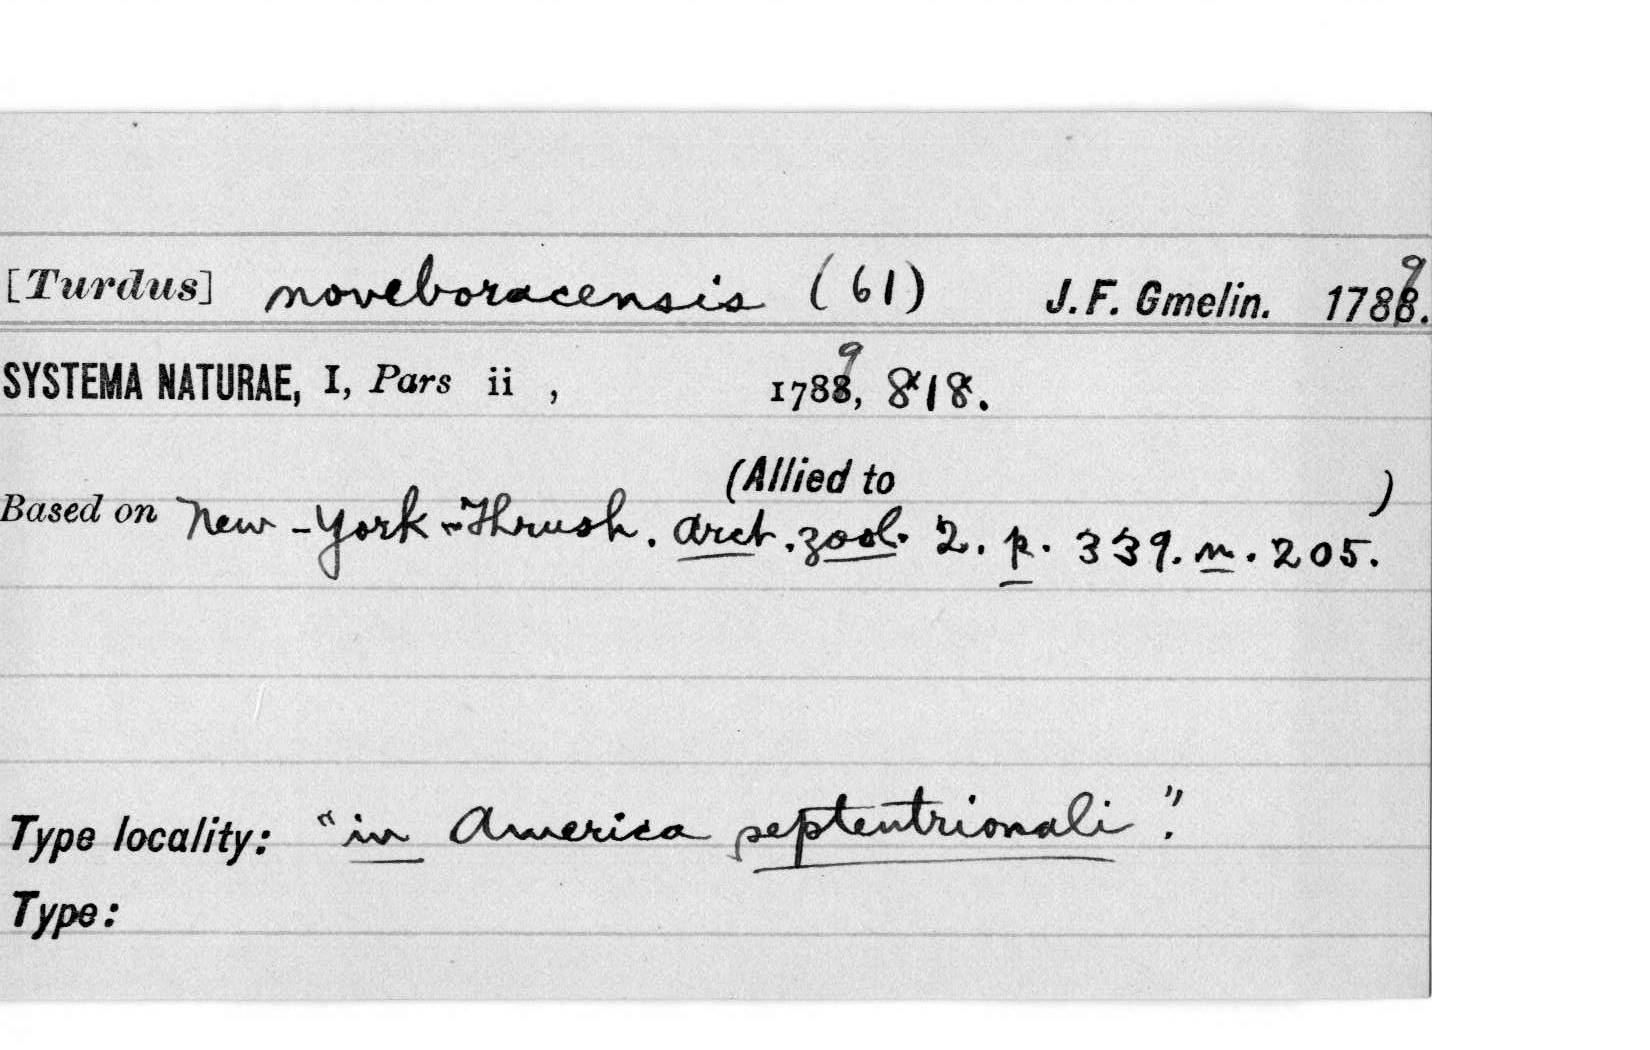 [Turdus] noveboracensis (61) J. F. Gmelin. 1789.
SYSTEMA NATURAE, I, Pars ii , 1789, 818.
(Allied to )
Based on New-York-Thrush. Arct. zool. 2. p. 339. n. 205.
Type locality: "in America septentrionali".
Type: